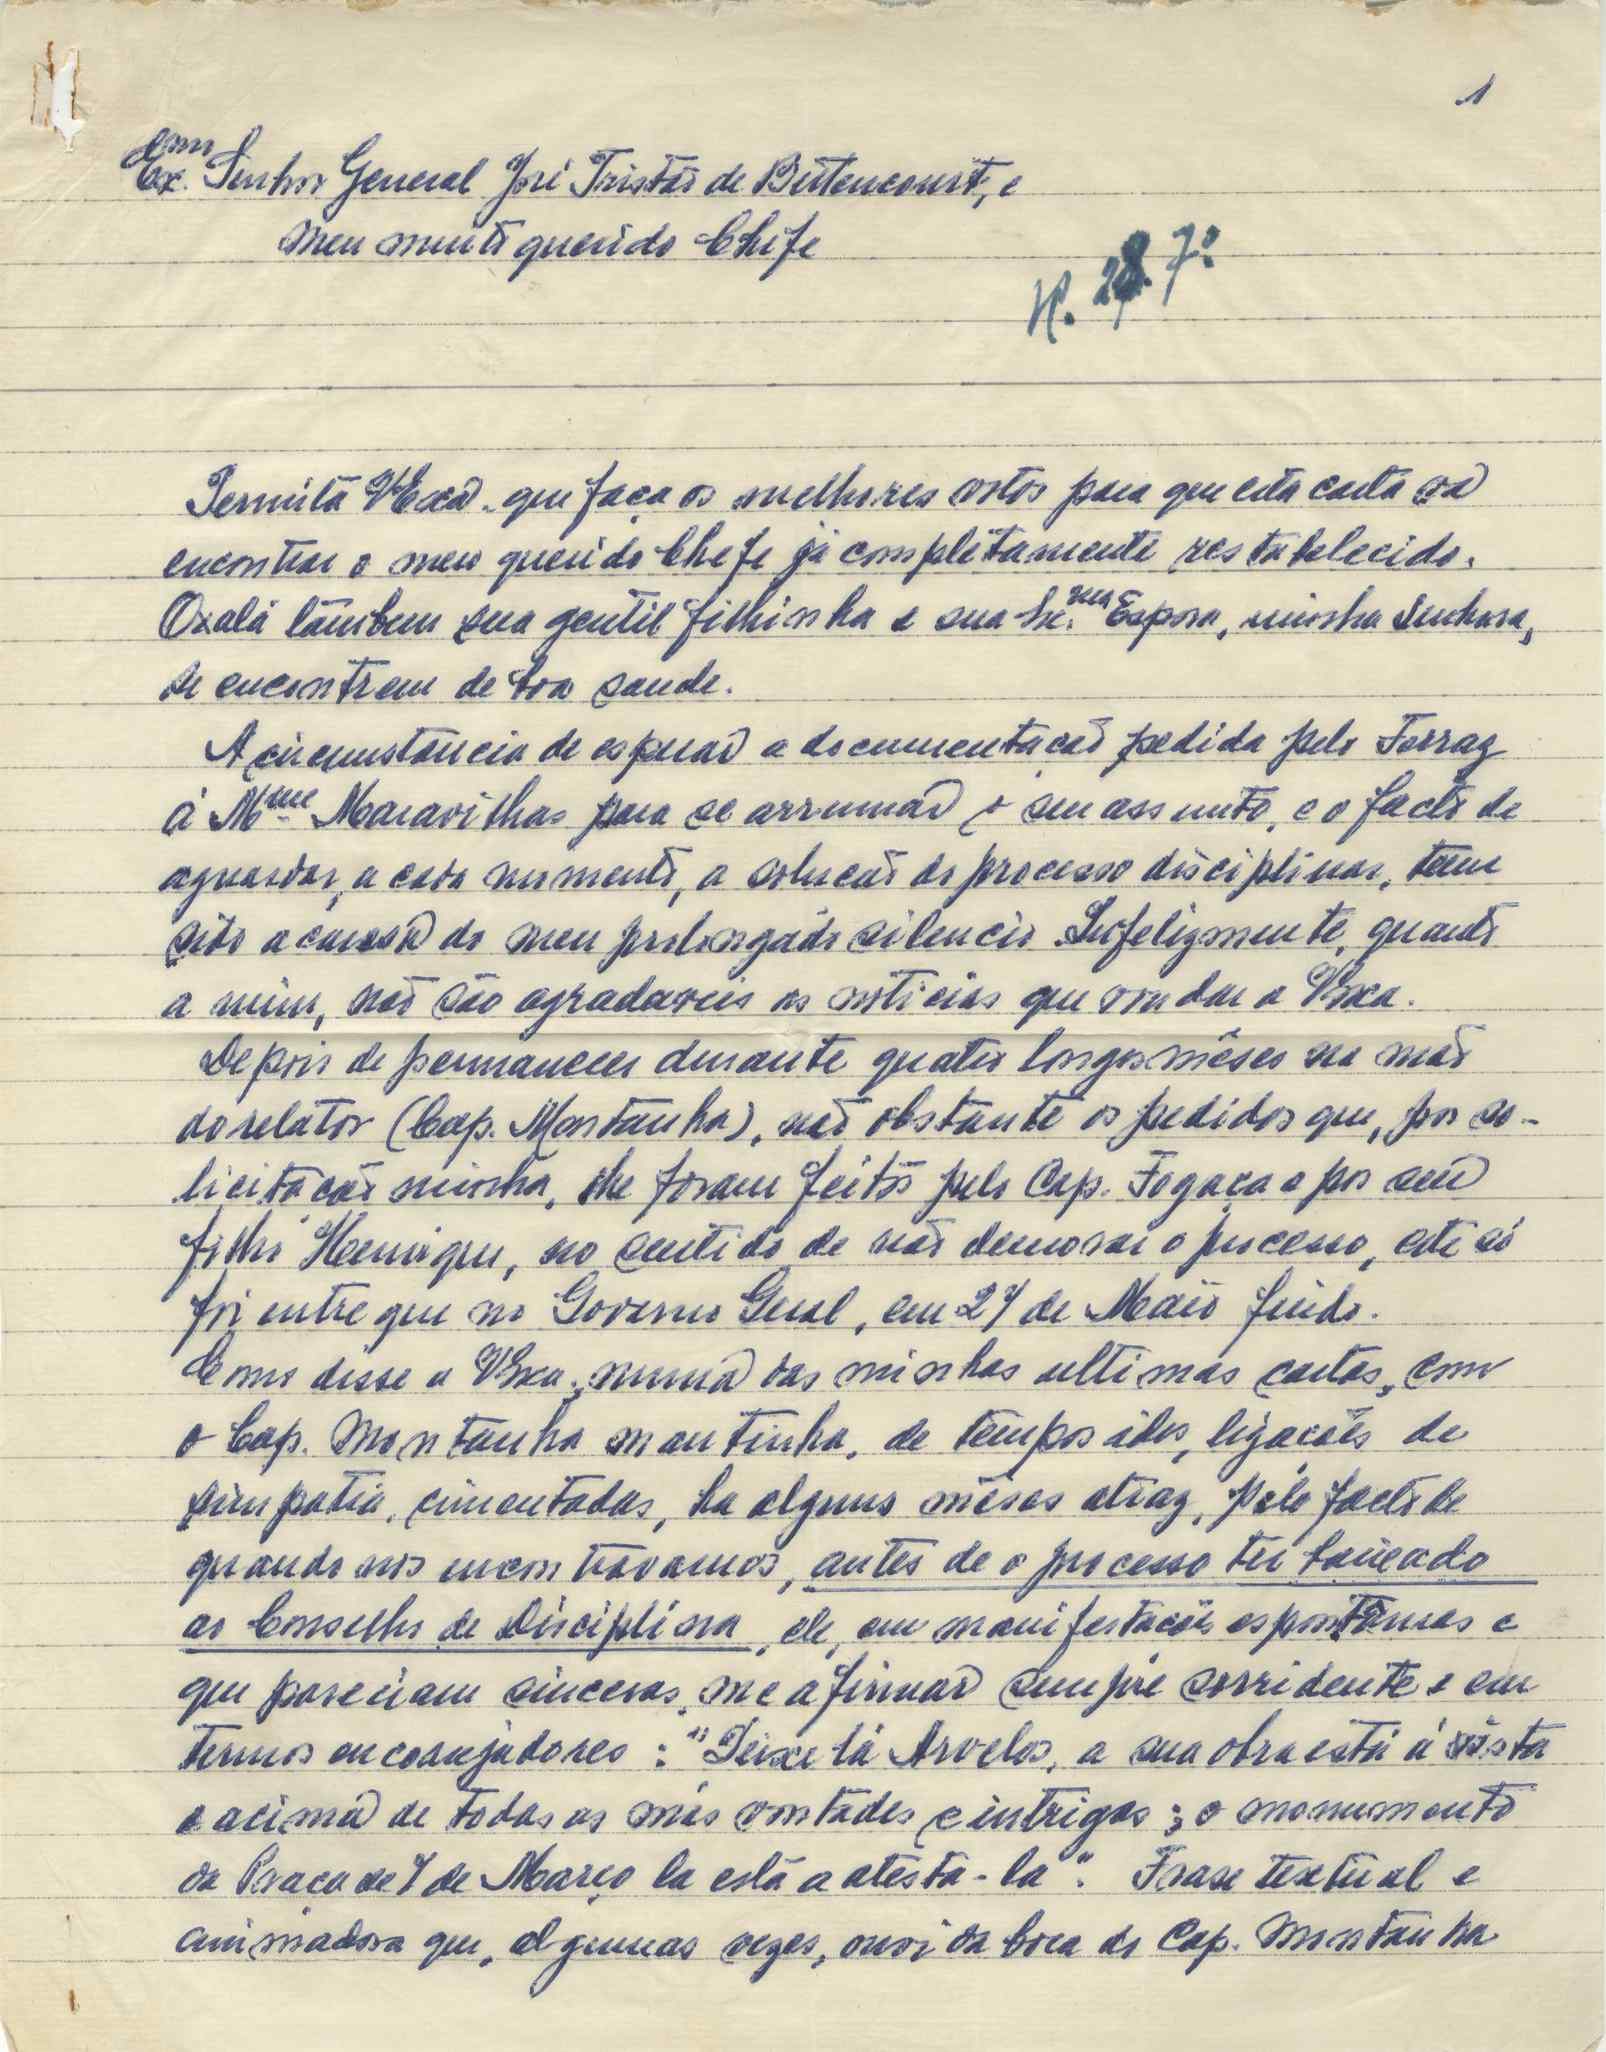 1
Ex.mo Senhor General José Tristão de Bettencourt, e
meu muito querido Chefe
R. 28. 7º
Permita VExa. que faça os melhores votos para que esta carta vá
encontrar o meu querido Chefe já completamente restabelecido.
Oxalá tambem sua gentil filhinha e sua Ex.ma Esposa, minha Senhora,
se encontrem de boa saude.
A circumstancia de esperar a documentação pedida pelo Ferraz
á M.me Maravilhas para se arrumar o seu assunto, e o facto de
aguardar, a cada momento, a solução do processo disciplinar, teem
sido a causa do meu prolongado silencio. Infelizmente, quanto
a mim, não são agradaveis as noticias que vou dar a VExa.
Depois de permanecer durante quatro longos mêses na mão
do relator (Cap. Montanha), não obstante os pedidos que, por so-
licitação minha, lhe foram feitos pelo Cap. Fogaça e por seu
filho Henrique, no sentido de não demorar o processo, este só
foi entregue no Governo Geral, em 27 de Maio findo.
Como disse a VExa., numa das minhas ultimas cartas, com
o Cap. Montanha mantinha, de tempos idos, ligações de
simpatia, cimentadas, ha alguns mêses atraz, pelo facto de
quando nos encontravamos, antes de o processo ter baixado
ao Conselho de Disciplina, ele, em manifestações espontâneas e
que pareciam sinceras, me afirmar sempre sorridente e em
termos encorajadores: "Deixe lá Arvelos, a sua obra está á vista
e acima de todas as más vontades e intrigas; o monumento
da Praça de 7 de Março la está a atesta-la". Frase textual e
animadora que, algumas vezes, ouvi da boca do Cap. Montanha